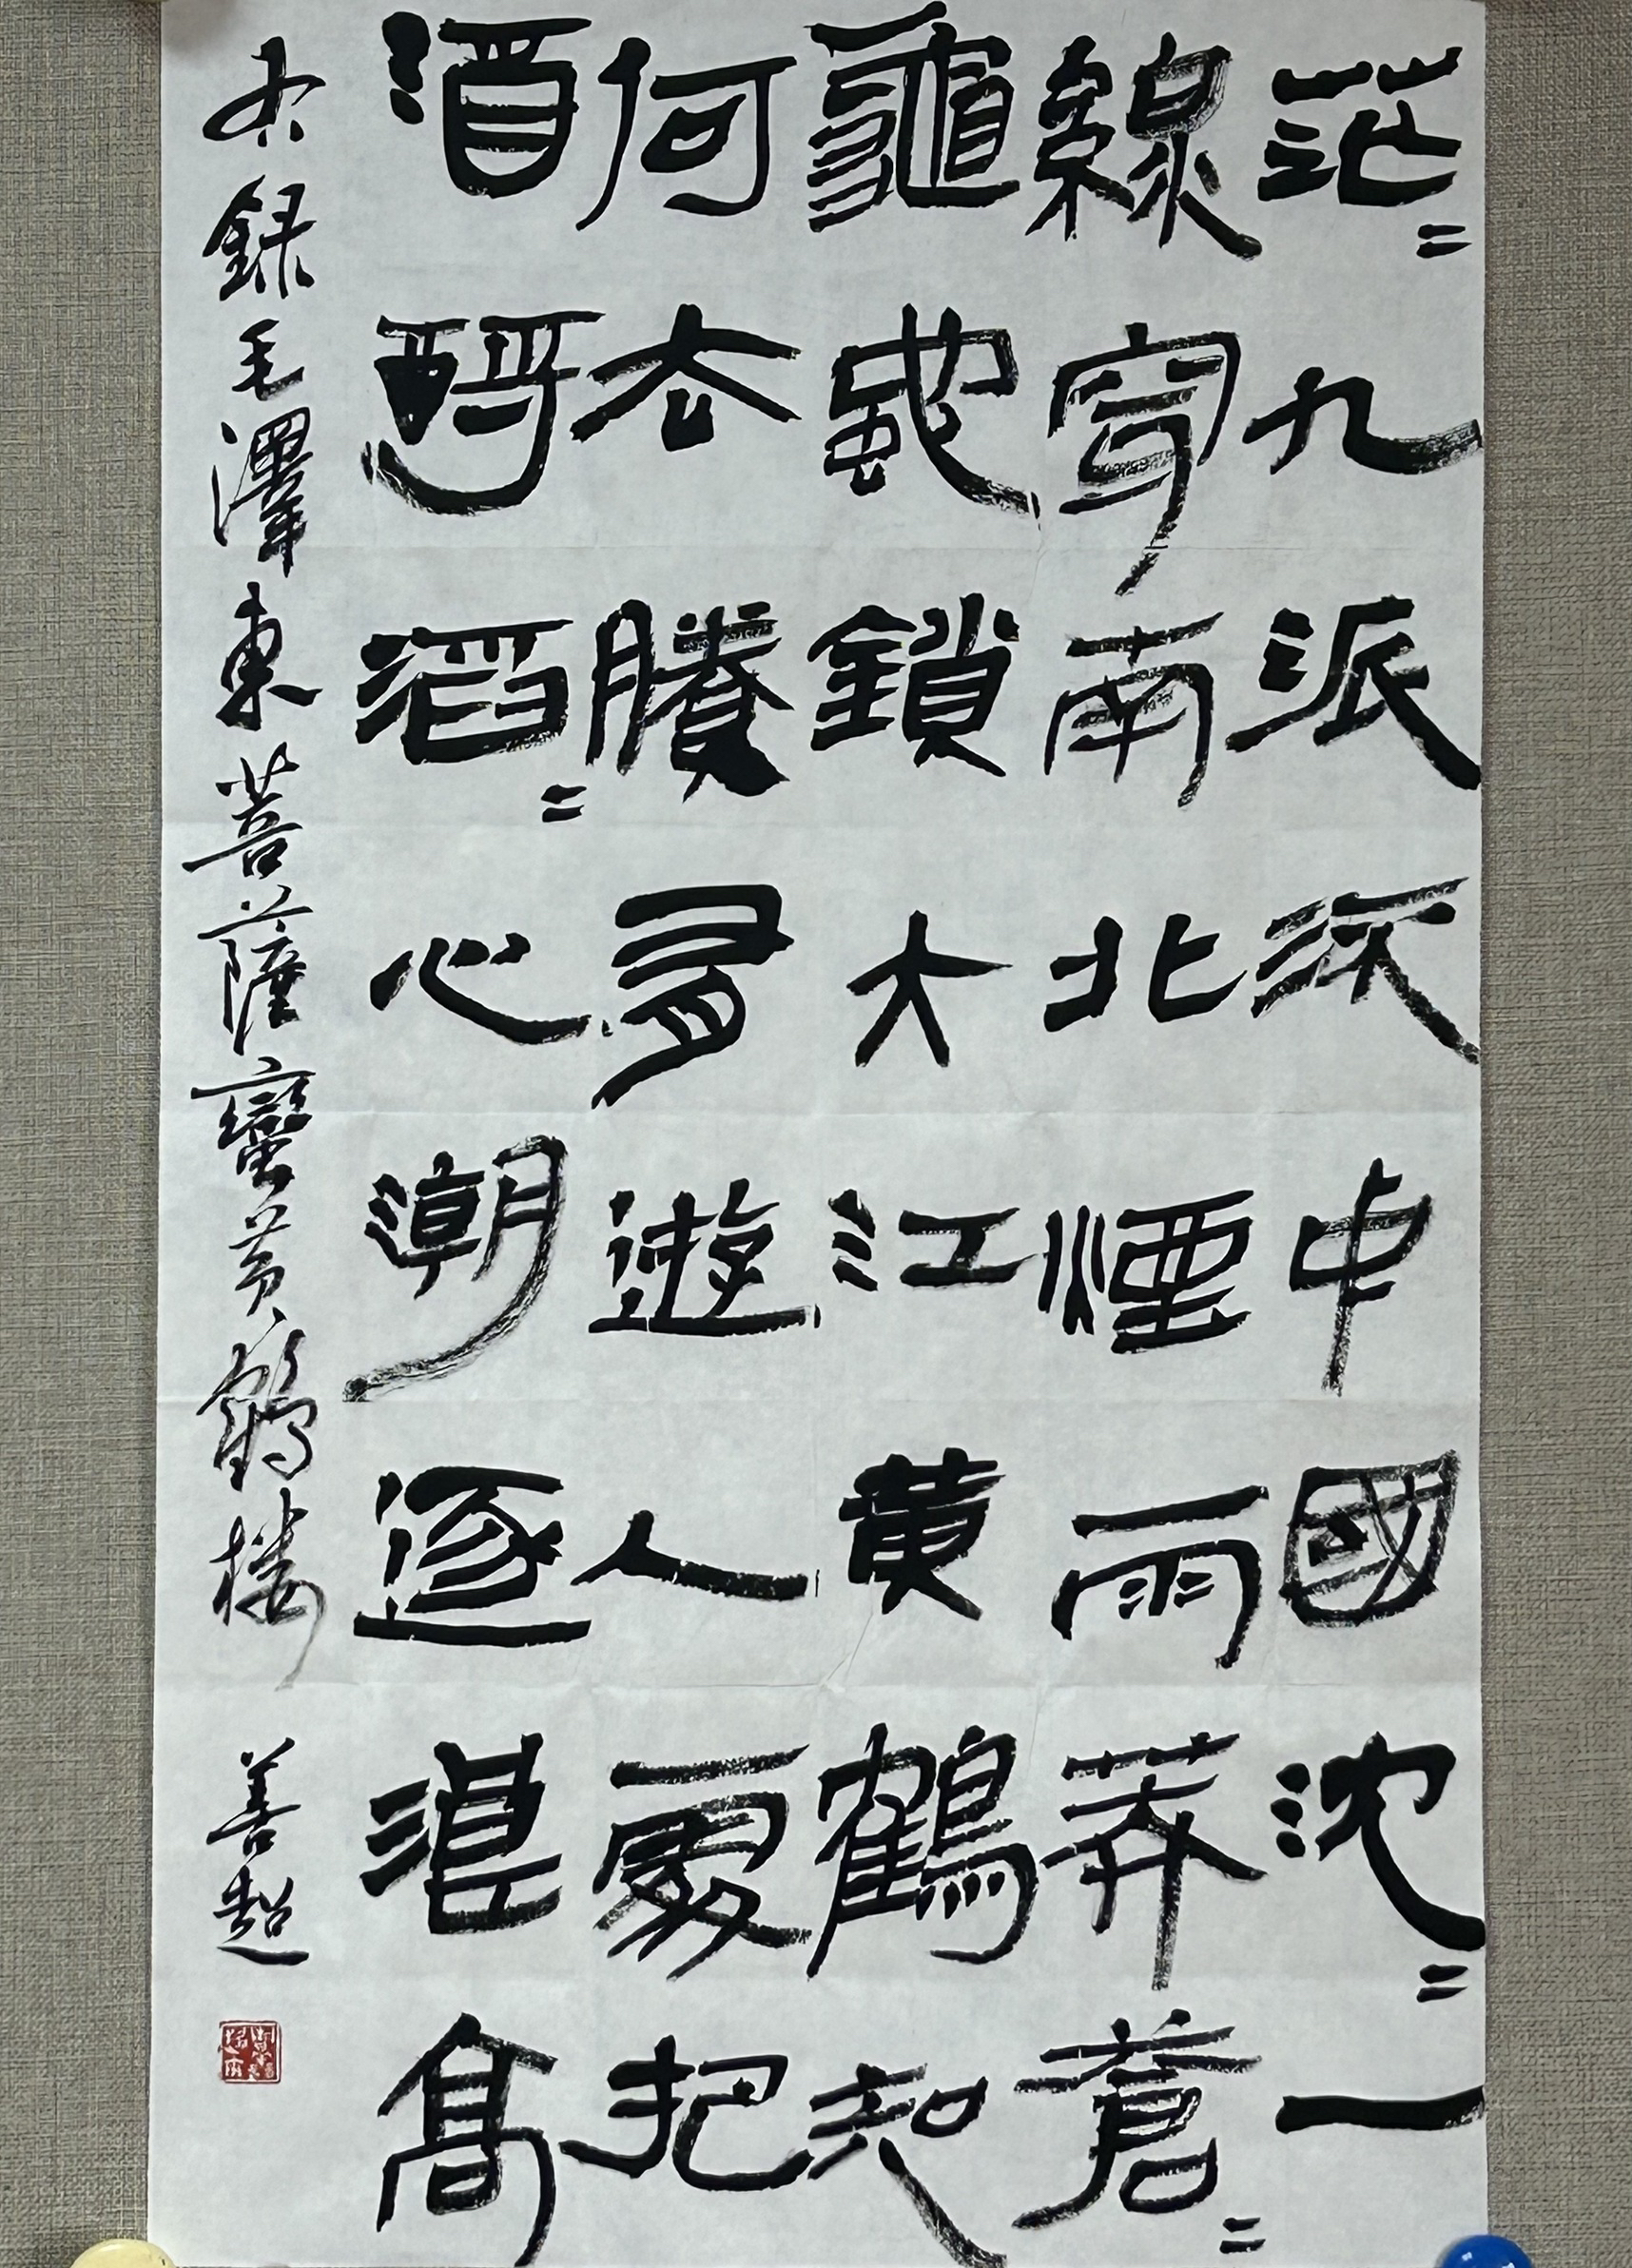 茫〻九派流中國沈〻一
線穿南北煙雨莽蒼〻
龜蛇鎖大江黄鶴知
何去賸有遊人處把
酒酹滔〻心潮逐浪高
右録毛澤東菩薩蠻黄鶴楼 善超